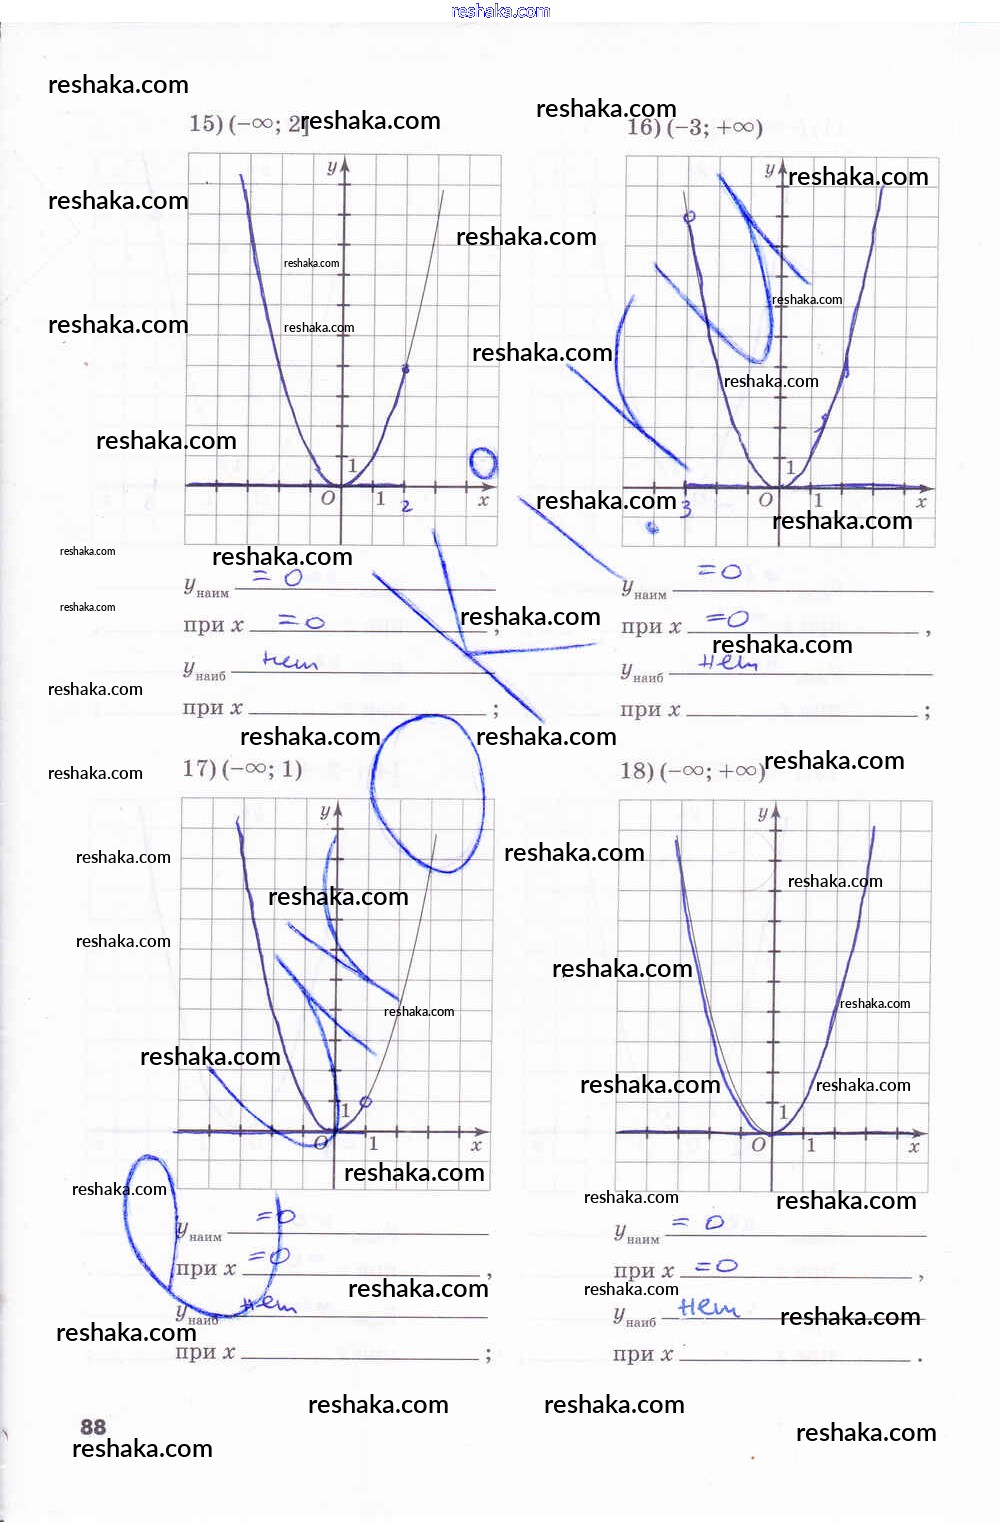 reshaka.com
reshaka.com
reshaka.com
15) (−∞; 2]
reshaka.com
16) (−3; +∞)
y
y
reshaka.com
reshaka.com
reshaka.com
reshaka.com
reshaka.com
reshaka.com
reshaka.com
reshaka.com
reshaka.com
reshaka.com
1
1
O 1 2 x
O 1 x
3
reshaka.com
reshaka.com
reshaka.com
reshaka.com
yнаим = 0
yнаим = 0
reshaka.com
reshaka.com
при x = 0 ,
при x = 0 ,
reshaka.com
yнаиб нет
yнаиб нет
reshaka.com
при x ;
при x ;
reshaka.com
reshaka.com
17) (−∞; 1)
18) (−∞; +∞)
reshaka.com
reshaka.com
y
y
reshaka.com
reshaka.com
reshaka.com
reshaka.com
reshaka.com
reshaka.com
reshaka.com
reshaka.com
reshaka.com
reshaka.com
reshaka.com
1
1
O 1 x
O 1 x
reshaka.com
reshaka.com
reshaka.com
reshaka.com
yнаим = 0
yнаим = 0
при x = 0 ,
при x = 0 ,
reshaka.com
reshaka.com
yнаиб нет
yнаиб нет
reshaka.com
reshaka.com
при x ;
при x .
reshaka.com
reshaka.com
88
reshaka.com
reshaka.com